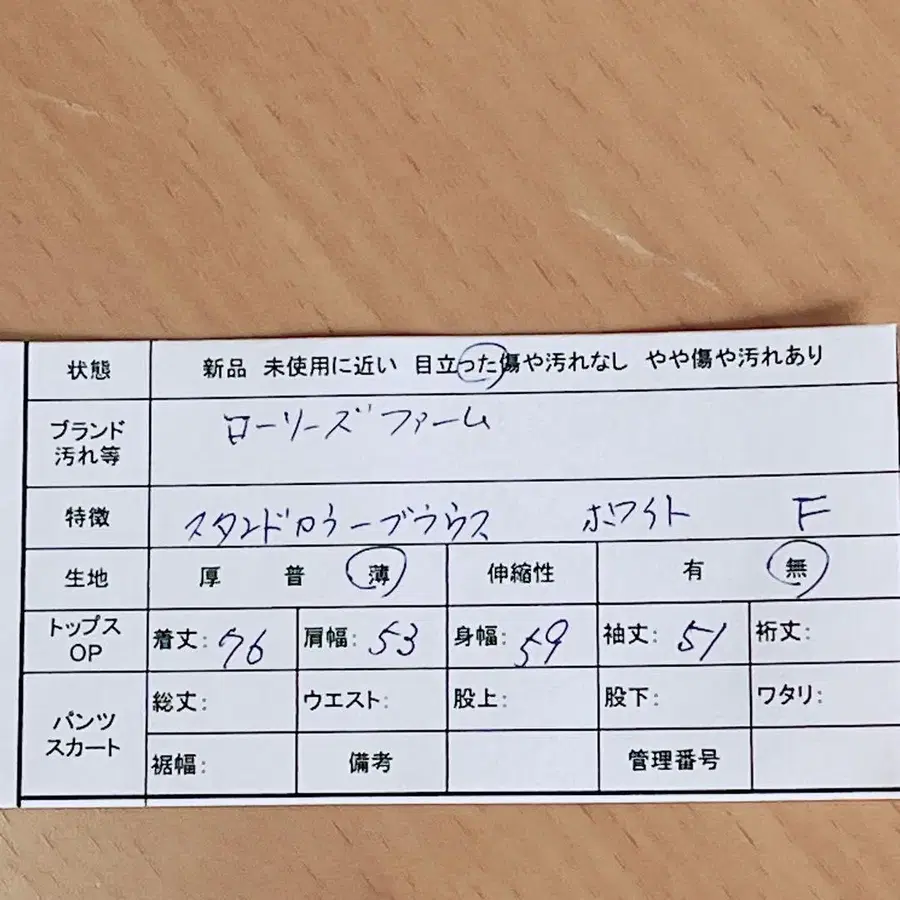 状態 新品 未使用に近い 目立った傷や汚れなし やや傷や汚れあり
ブランド
汚れ等
ローリーズファーム
特徴 スタンドカラーブラウス ホワイト F
生地 厚 普 薄 伸縮性 有 無
トップス
OP
着丈:76 肩幅:53 身幅:59 袖丈:51 裄丈:
パンツ
スカート
総丈: ウエスト: 股上: 股下: ワタリ:
裾幅: 備考 管理番号